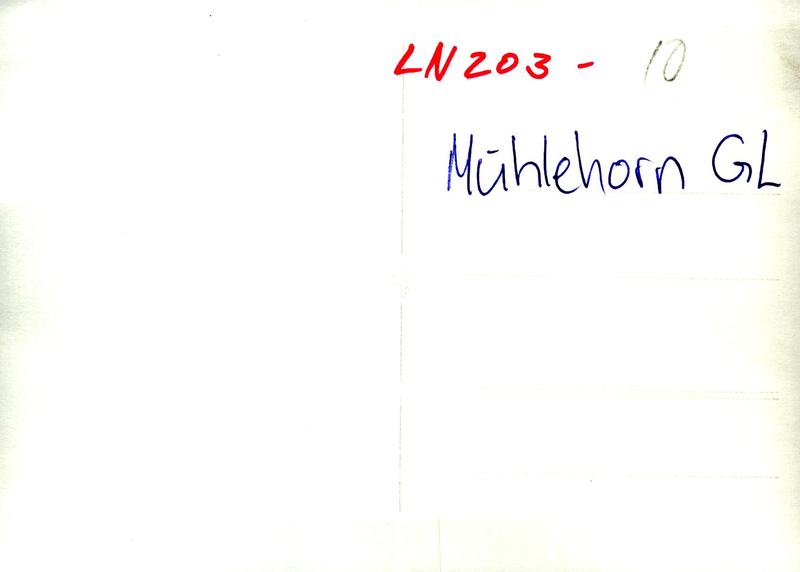 LN203 - 10
Mühlehorn GL